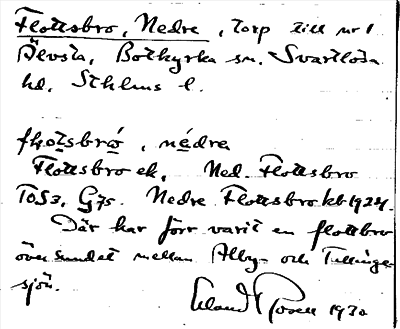 Flottsbro, Nedre, torp till nr 1
Älvsta, Botkyrka sn. Svartlösa
hd, Sthlms l.
flọtsbrò, nédra
Flottsbro ek, Ned. Flottsbro
TOS3, G75. Nedre Flottsbro kb 1924.
Där har förr varit en flottbro
över sundet mellan Alby- och Tullinge-
sjön.
Erland Rosell 1930